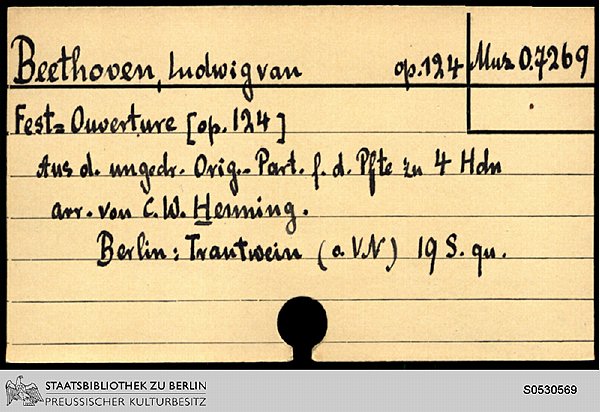 Beethoven, Ludwig van op. 124 Mus. O. 7269
Fest=Ouverture [op. 124]
Aus d. ungedr. Orig.-Part. f. d. Pfte zu 4 Hdn
arr. von C. W. Henning.
Berlin: Trautwein (o. V.N) 19 S. qu.
STAATSBIBLIOTHEK ZU BERLIN
PREUSSISCHER KULTURBESITZ
S0530569